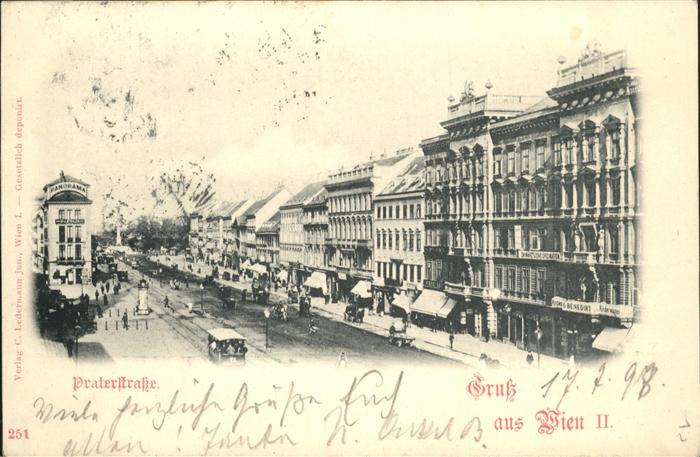 PANORAMA
BENEDIKT
Verlag C. Ledermann jun., Wien I. — Gesetzlich deponirt.
Praterstraße.
Gruß
aus Wien II.
17. 7. 98.
Viele herzliche Grüße Euch
allen!
251